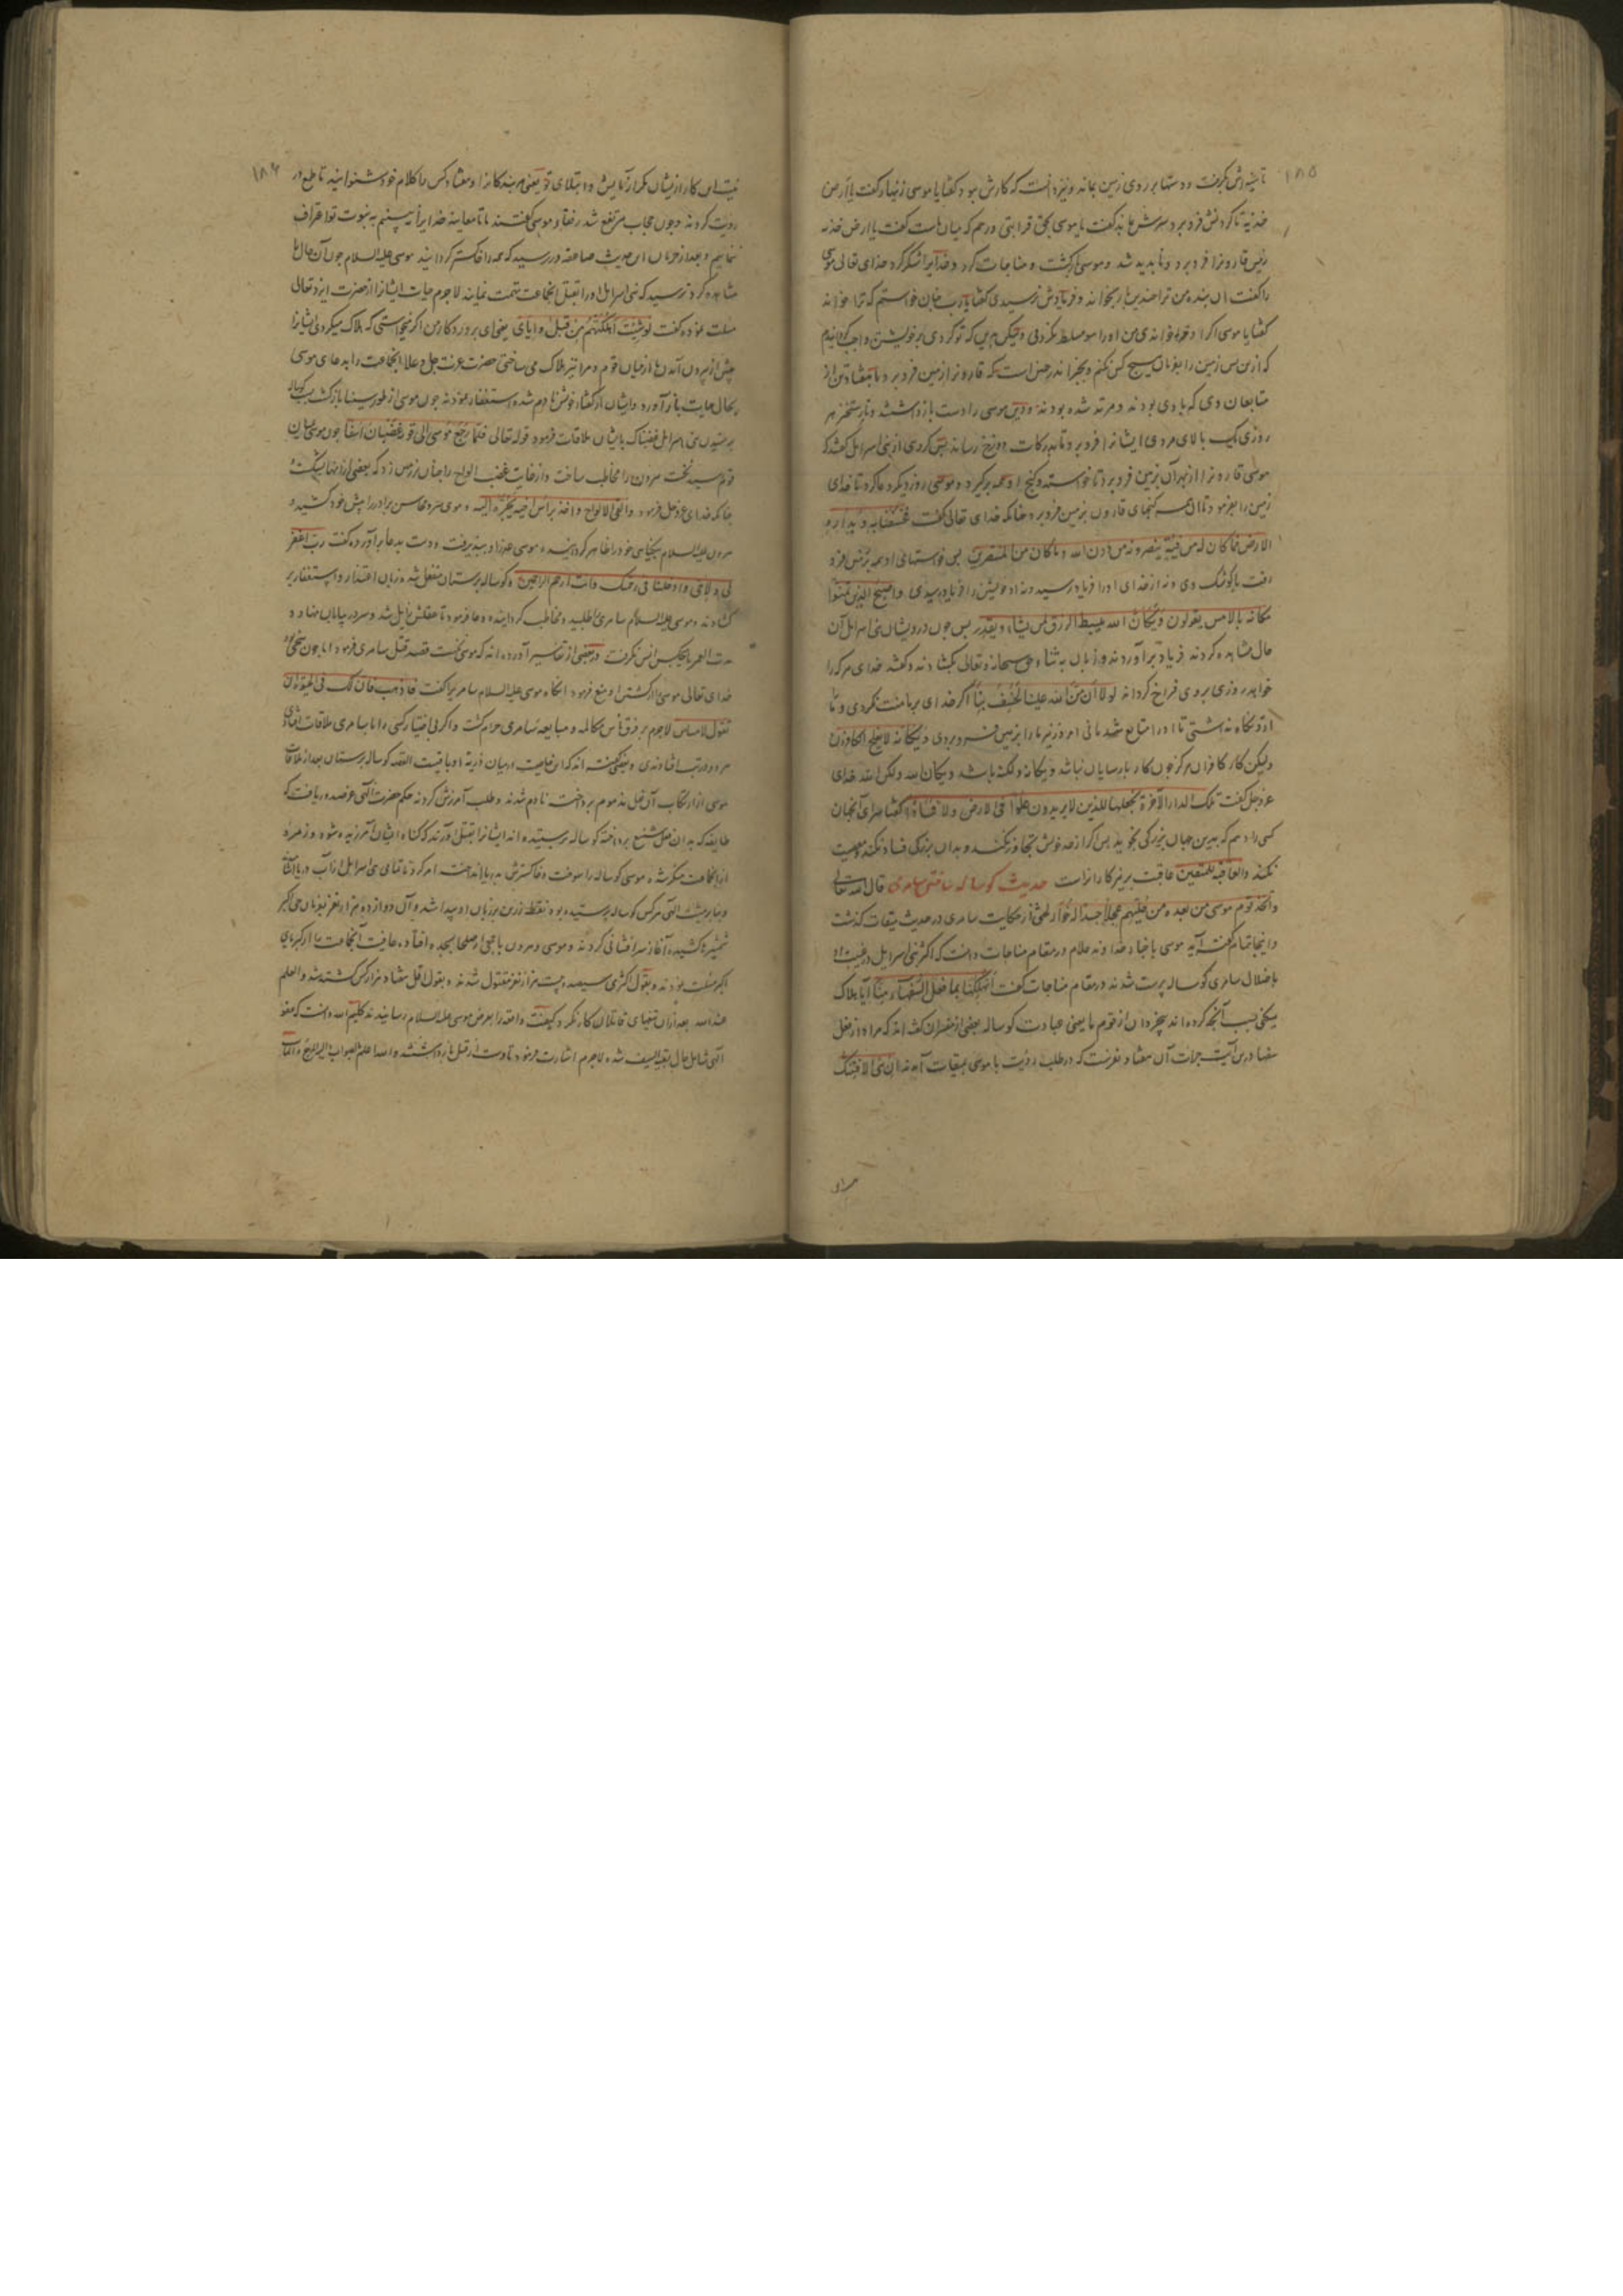 ۱۸۵
تا سینه اش بگرفت و دستها بر روی زمین بماند و نیز دانست که کارش بود گفتا یا موسی زنهار گفت یا ارض
خذیه تا گردنش فرو برد سرش بماند گفت یا موسی بحق قرابتی و رحم که میان ماست گفت یا ارض خذیه
زمین قارونرا فرو برد و ناپدید شد و موسی برگشت و مناجات کرد و خدایرا شکر کرد خدای تعالی موسی
را گفت آن بنده من ترا چندین بار بخواند و فریادش نرسیدی گفتا یارب چنان خواستم که ترا خواند
گفتا یا موسی اگر او خواندی من او را مسلط نکردمی ولیکن بدین که تو کردی بر خویشتن واجب گردانیدم
که ازین پس زمین را بفرمان هیچ کس نکنم و بخبر اندر چنین است که قارونرا زمین فرو برد و با هفتاد تن از
متابعان وی که با وی بودند و مرتد شده بودند و دین موسی را دست باز داشتند و تا رستخیز هر
روزی یک بالای مردی ایشانرا فرو برد تا بدرکات دوزخ رساند پس گروهی از بنی اسرائیل گفتند که
موسی قارونرا از بهر آن بزمین فرو برد تا خواسته و گنج او همه برگیرد و موسی روز دیگر دعا کرد تا خدای
زمین را بفرمود تا آن همه گنجهای قارون بزمین فرو برد چنانکه خدای تعالی گفت فخسفنا به و بداره
الارض فما کان له من فئة ینصرونه من دون الله و ما کان من المنتصرین پس خواستهای او همه بزمین فرو
رفت با کوشک وی و نه از خدای او را فریاد رسید و نه او خویشتن را فریاد رسیدی و اصبح الذین تمنوا
مکانه بالامس یقولون ویکان الله یبسط الرزق لمن یشاء و یقدر پس چون درویشان بنی اسرائیل آن
حال مشاهده کردند فریاد برآوردند و زبان به ثناء حق سبحانه و تعالی بگشادند و گفتند خدای هرکه را
خواهد روزی بر وی فراخ گرداند لولا ان من الله علینا لخسف بنا اگر خدای بر ما منت نکردی و ما
از و نگاه نداشتی تا او را متابع شدمانی امروز نیز ما را بزمین فرو بردی ویکانه لا یفلح الکافرون
ولیکن کار کافران هرگز چون کار پارسایان نباشد ویکانه ولکنه باشد ویکان الله ولکن الله خدای
عز و جل گفت تلک الدار الآخرة نجعلها للذین لا یریدون علوا فی الارض و لا فسادا گفتا سرای آنجهان
کسی را دهم که بدین جهان بزرگی نجوید پس اگر از حد خویش تجاوز نکند و بدان بزرگی فساد نکند و معصیت
نکند والعاقبة للمتقین عاقبت پرهیزکارانراست حدیث گوساله ساختن سامری قال الله تعالی
و اتخذ قوم موسی من بعده من حلیهم عجلا جسدا له خوار لختی از حکایت سامری در حدیث میقات گذشت
و اینجا تمام گفت آید موسی باخبار خداوند علام در مقام مناجات دانست که اکثر بنی اسرائیل در غیبت او
باضلال سامری گوساله پرست شدند در مقام مناجات گفت اتهلکنا بما فعل السفهاء منا آیا هلاک
میکنی بسبب آنچه کرده اند بیخردان از قوم ما یعنی عبادت گوساله بعضی از مفسران گفته اند که مراد از فعل
سفها درین آیت جرات آن هفتاد نفرست که در طلب رؤیت با موسی بمیقات آمدند ان هی الا فتنتک
۱۸۶
نیست این کار ازیشان مگر از آزمایش و ابتلای تو یعنی بندگانرا و هفتاد کس را کلام خود شنوانید تا طمع در
رؤیت کردند و چون حجاب مرتفع شد رفقاء موسی گفتند ما تا معاینه خدایرا نه بینیم به نبوت تو اعتراف
ننماییم و بعد از جریان این حدیث صاعقه در رسید که همه را خاکستر گردانید موسی علیه السلام چون آن حال را
مشاهده کرد ترسید که بنی اسرائیل او را بقتل آنجماعت متهم نمایند لاجرم حیات ایشانرا از حضرت ایزد تعالی
مسئلت نموده گفت لو شئت اهلکتهم من قبل و ایای یعنی ای پروردگار من اگر میخواستی که هلاک میکردی ایشانرا
پیش از بیرون آمدن ما از میان قوم و مرا نیز هلاک می ساختی حضرت عزت جل و علا آنجماعت را بدعای موسی
بحال حیات باز آورد و ایشان از گفتار خویش نادم شده استغفار نمودند چون موسی از طور سینا بازگشت بسبب گوساله
پرستیدن بنی اسرائیل غضبناک بایشان ملاقات فرمود قوله تعالی فلما رجع موسی الی قومه غضبان اسفا چون موسی بمیان
قوم رسید نخست هرون را مخاطب ساخت و از غایت غضب الواح را چنان بر زمین زد که بعضی از آنها بشکست
چنانکه خدای عز و جل فرمود و القی الالواح و اخذ براس اخیه یجره الیه و موی سر و محاسن برادر را پیش خود کشید و
هرون علیه السلام بیگناهی خود را ظاهر گردانید و موسی عذر او بپذیرفت و دست بدعا برآورده گفت رب اغفر
لی و لاخی و ادخلنا فی رحمتک و انت ارحم الراحمین و گوساله پرستان منفعل شده زبان اعتذار و استغفار بر
گشادند و موسی علیه السلام سامری را طلبید و مخاطب گردانیده دعا فرمود تا عقلش زایل شد و سر در بیابان نهاد و
مدت العمر با هیچکس انس نگرفت در بعضی از تفاسیر آورده اند که موسی نخست قصد قتل سامری فرمود اما چون سخی بود
خدای تعالی موسی را از کشتن او منع فرمود آنگاه موسی علیه السلام سامریرا گفت فاذهب فان لک فی الحیوة ان
تقول لامساس لاجرم بر فرق ناس مکالمه و مبایعه سامری حرام گشت و اگر بی اختیار کسی را با سامری ملاقات افتادی
هر دو در تب افتادندی و بعضی گفته اند که این خاصیت در میان ذریة او باقیست القصه گوساله پرستان بعد از ملاقات
موسی از ارتکاب آن فعل مذموم پرداخت نادم شدند و طلب آمرزش کردند حکم حضرت الهی عز صدور یافت که
طایفه که بدان فعل شنیع پرداخته گوساله پرستیده اند ایشانرا بقتل آورند که گناه ایشان آمرزیده شود و زمره
ازانجماعت منکر شده موسی گوساله را سوخت و خاکسترش بدریا انداخت امر کرد تا تمامی بنی اسرائیل ازان آب دریا
و بنابر مشیت الهی هرکس گوساله پرستیده بود نقطه زرین بر زبان او پیدا شد و آن دوازده هزار نفر بفرمان حی اکبر
شمشیرها کشیده آغاز سرافشانی کردند و موسی و هرون با جمعی از صلحا بسجده افتاده عافیت آنجماعت را از کبریای
اکبر مسئلت نمودند و بقول اکثری سیصد و بیست هزار نفر مقتول شدند و بقول اقل هفتاد هزار کس کشته شد و العلم
عند الله بعد ازان تیغهای قاتلان کار نکرد کیفیت واقعه را بعرض موسی علیه السلام رسانیدند کلیم الله دانست که عفو
الهی شامل حال بقیة السیف شده لاجرم اشارت فرمود تا دست از قتل باز داشتند و الله اعلم بالصواب و الیه المرجع و المآب